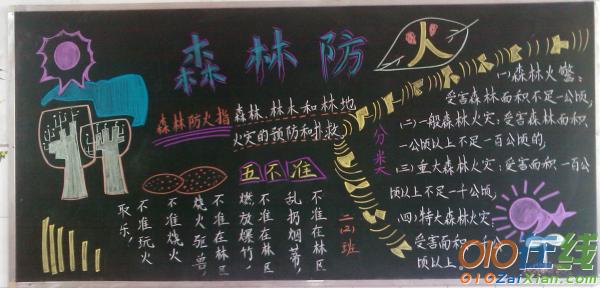 森林防火
森林防火指
森林、林木和林地
火灾的预防和扑救
五不准
不准在林区
乱扔烟蒂,
不准在林区
燃放爆竹,
不准在林区
烧火驱兽,
不准烧火
不准玩火
取乐!
二(2)班
分类
(一)森林火警:
受害森林面积不足一公顷,
(二)一般森林火灾:受害森林面积
一公顷以上不足一百公顷的,
(三)重大森林火灾:受害面积一百公
顷以上不足一千公顷,
(四)特大森林火灾
受害面积一千公
顷以上。
010在线
010ZaiXian.com